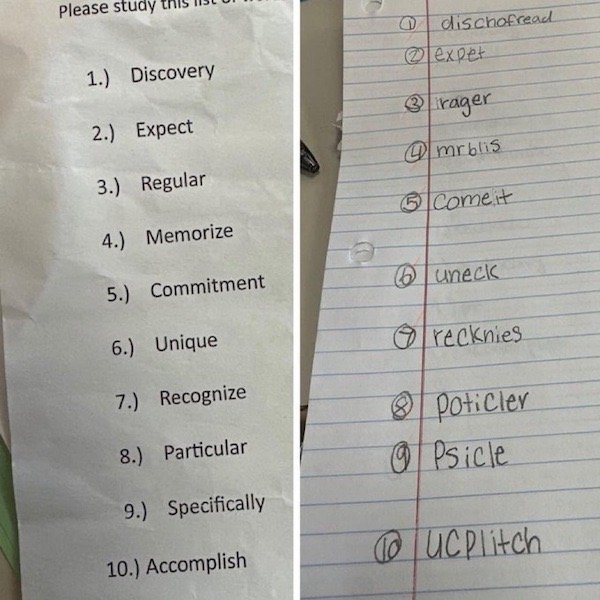 Please study this list of
1.) Discovery
2.) Expect
3.) Regular
4.) Memorize
5.) Commitment
6.) Unique
7.) Recognize
8.) Particular
9.) Specifically
10.) Accomplish
① dischofread
② expet
③ rager
④ mrblis
⑤ comeit
⑥ uneck
⑦ recknies
⑧ poticler
⑨ Psicle
⑩ ucplitch